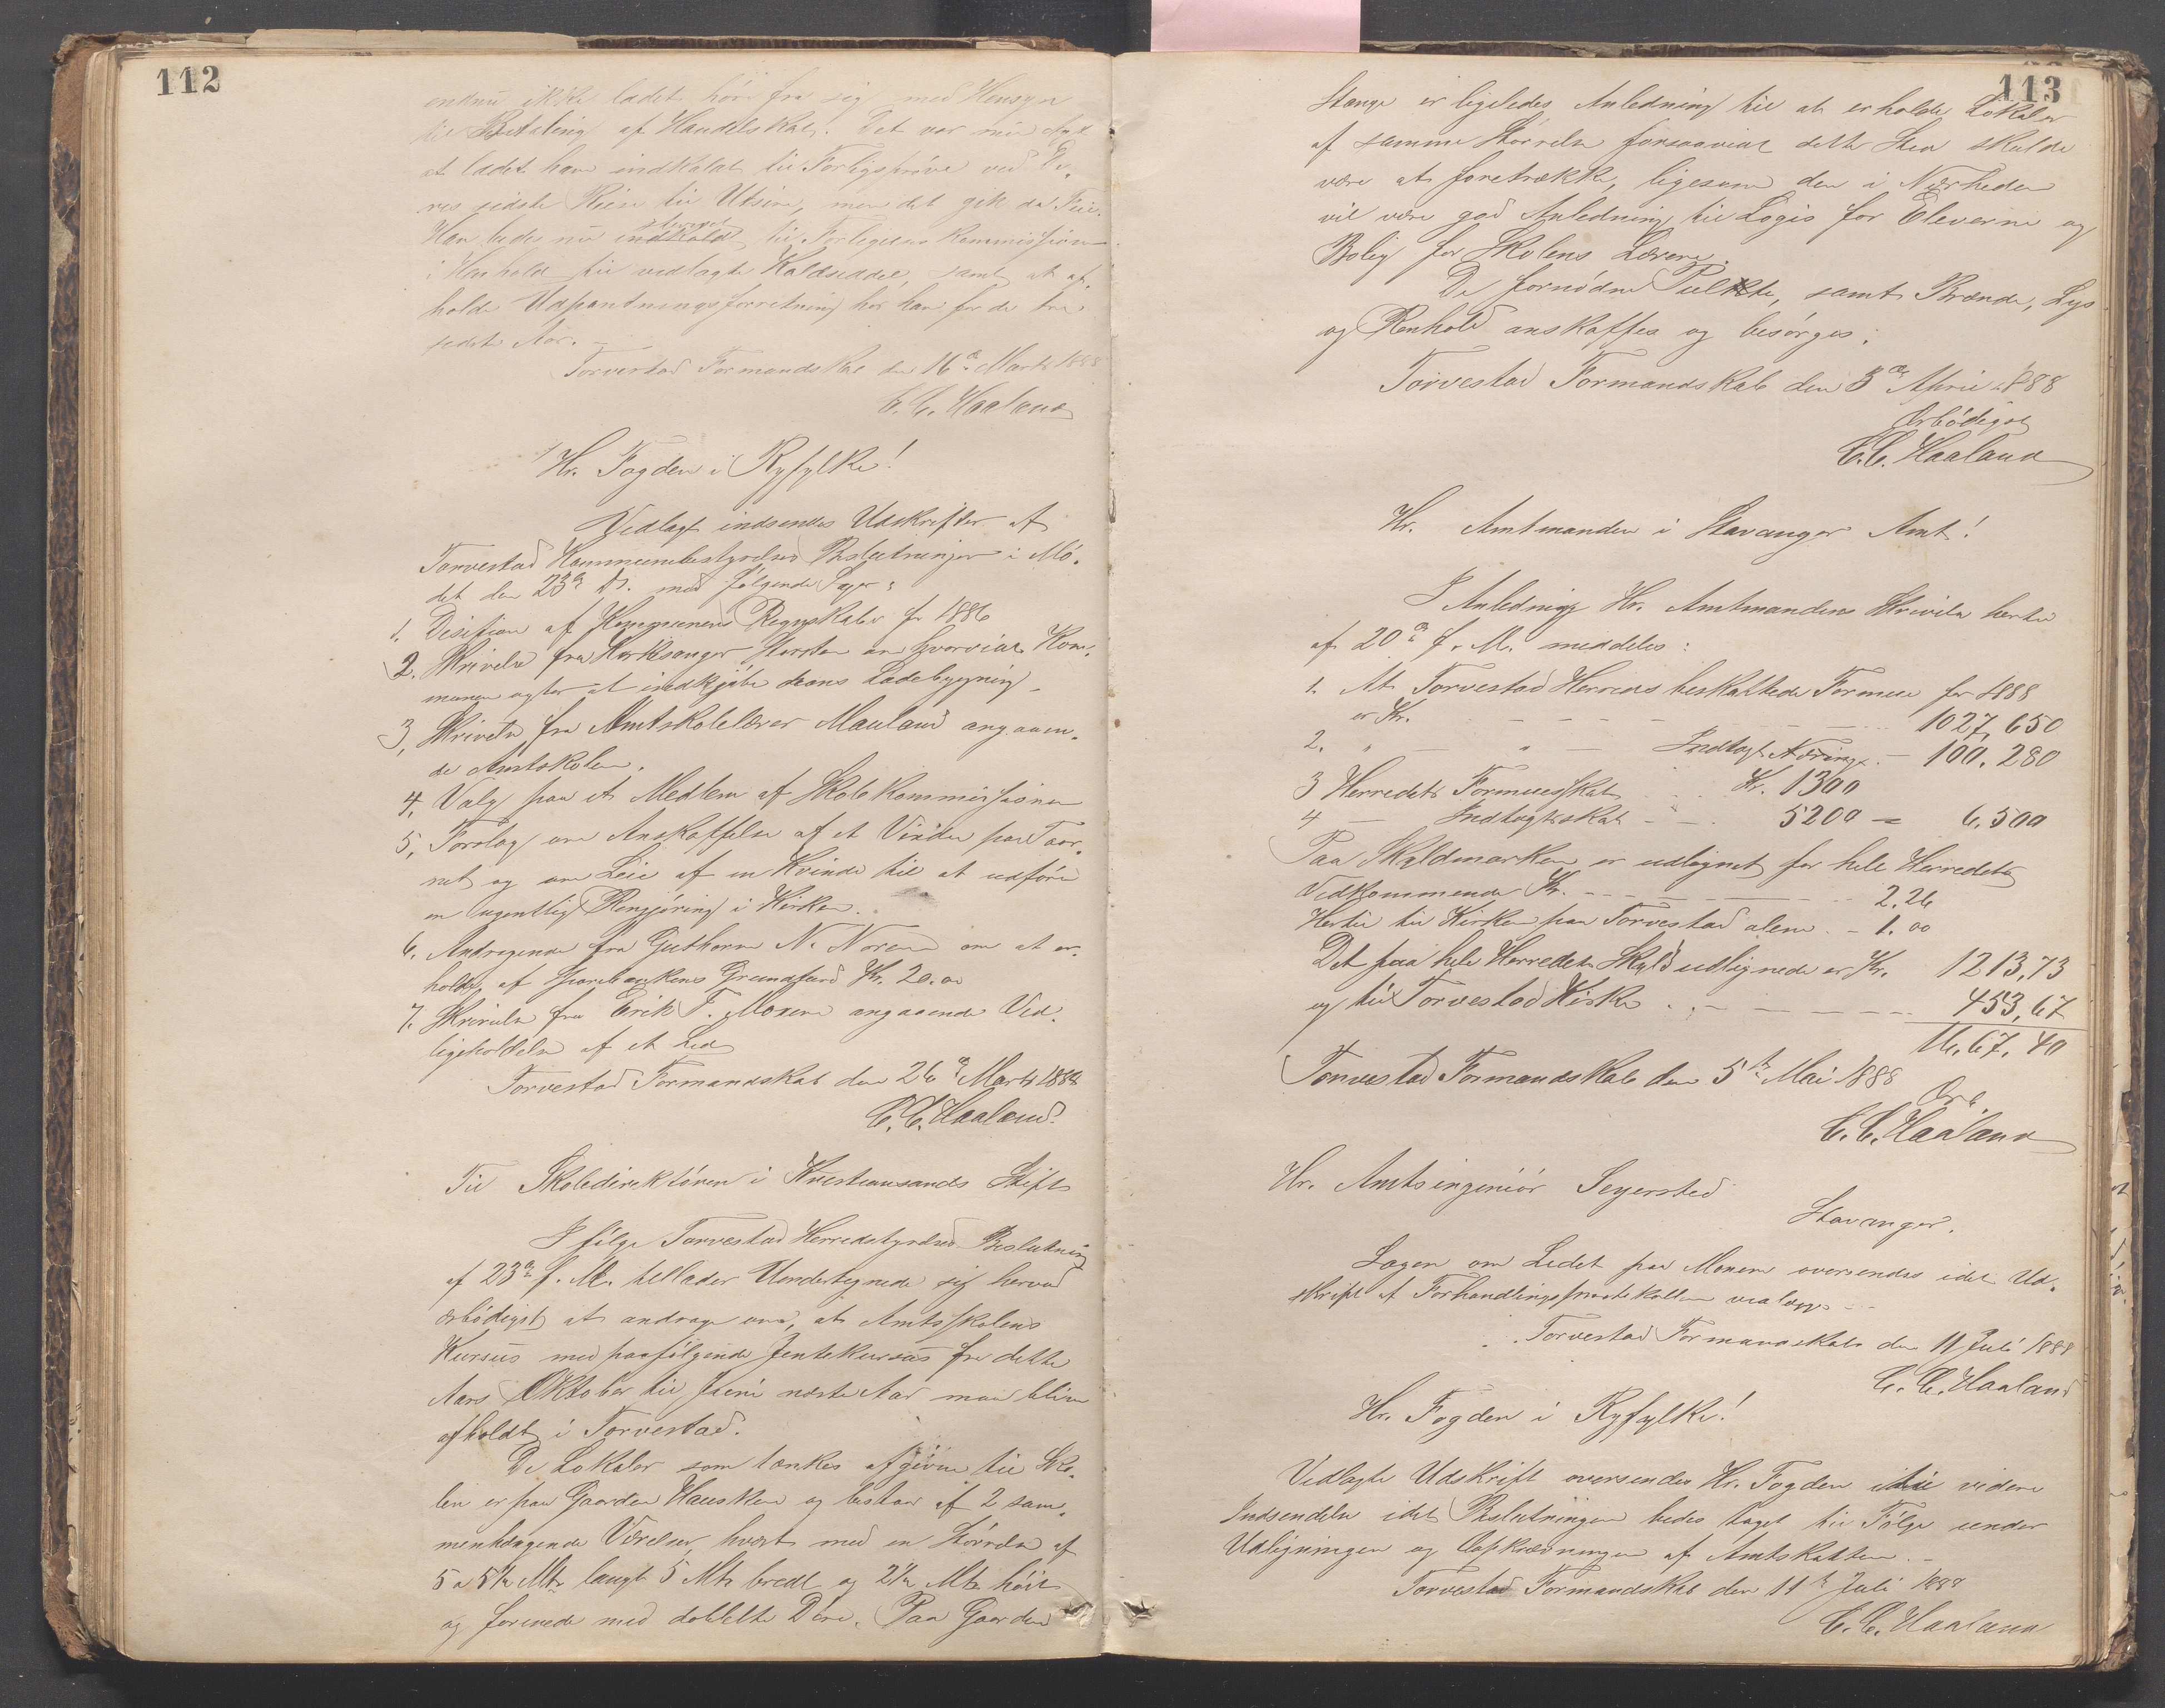 112
endnu ikke ladet höre fra sig med Hensyn
til Betaling af Handelskat. Det var min Agt
at ladet ham indkalde til Forligsprøve ved De-
res sidste Reise til Utsire, men det gik da Feil.
Han bedes nu indkaldt til Forligelses Kommission
i Henhold til vedlagte Kaldseddel, samt at af-
holde Udpantningsforretning hos ham for de tre
sidste Aar.
Torvestad Formandskab den 16de Marts 1888
C. C. Haaland
Hr. Fogden i Ryfylke!
Vedlagt indsendes Udskrifter af
Torvestad Kommunebestyrelses Beslutninger i Mö-
det den 23de ds. med følgende Sager:
1. Disition af Kommunens Regnskaber for 1886
2. Skrivelse fra Kirkesanger Horsten om hvorvidt Kom-
munen agter at indkjøbe hans Ladebygning
3, Skrivelse fra Amtskolelærer Mauland angaaen-
de Amtskolen.
4, Valg paa et Medlem af Skolekommissionen
5, Forslag om Anskaffelse af et Vindu paa Taar-
net og om Leie af en Kvinde til at udföre
en ugentlig Rengjöring i Kirken.
6. Andragende fra Guthorm N. Norend om at er-
holde af Sparebankens Grundfond Kr. 20.00
7. Skrivelse fra Erik T. Moxen angaaende Ved-
ligeholdelse af et Led
Torvestad Formandskab den 26de Marts 1888
C. C. Haaland
Til Skoledirektören i Kristiansands Stift
I følge Torvestad Herredstyrelses Beslutning
af 23de f. M. tillader Undertegnede sig herved
ærbödigst at andrage om, at Amtsskolens
Kursus med paafølgende Jentekursus fra dette
Aars Oktober til Juni næste Aar maa blive
afholdt i Torvestad.
De Lokaler som tænkes afgivne til Sko-
len er paa Gaarden Hausken og bestaar af 2 sam-
menhængende Værelser, hvert med en Störrelse af
5 a 5½ Mtr langt 5 Mtr bredt og 2½ Mtr höit
og forsynede med dobbelte Döre. Paa Gaarden
113
Stange er ligeledes Anledning til at erholde Lokaler
af samme Störrelse forsaavidt dette Sted skulde
være at foretrække, ligesom der i Nærheden
vil være god Anledning til Logis for Eleverne og
Bolig for Skolens Lærere.
De fornödne Pulte, samt Brænde, Lys
og Renhold anskaffes og besörges.
Torvestad Formandskab den 3de April 1888
Ærbödigst
C. C. Haaland
Hr. Amtmanden i Stavanger Amt!
I Anledning Hr. Amtmandens Skrivelse hertil
af 20de f. M. meddeles:
1. At Torvestad Herreds beskattede Formue for 1888
er Kr. - - - - 1027,650
2. " — " — Indtægt Næring - 100.280
3 Herredets Formueskat . . . Kr. 1300
4 — Indtægtsskat - - . 5200 = 6,500
Paa Skyldmarken er udlignet for hele Herredets
Vedkommende Kr. - - - - - - 2.26
Hertil til Kirken paa Torvestad alene - 1.00
Det paa hele Herredets Skyld udlignede er Kr. 1213,73
og til Torvestad Kirke . . - - - - 453,67
16.67.40
Torvestad Formandskab den 5te Mai 1888
Ærb.
C. C. Haaland
Hr. Amtsingeniör Seyersted
Stavanger.
Sagen om Ledet paa Moxene oversendes idet Ud-
skrift af Forhandlingsprotokollen vedlægges
Torvestad Formandskab den 11 Juli 1888
C. C. Haaland
Hr. Fogden i Ryfylke!
Vedlagte Udskrift oversendes Hr. Fogden til videre
Indsendelse idet Beslutningen bedes taget til Følge under
Udligningen og Opkrævningen af Amtskatten.
Torvestad Formandskab den 11te Juli 1888
C. C. Haaland